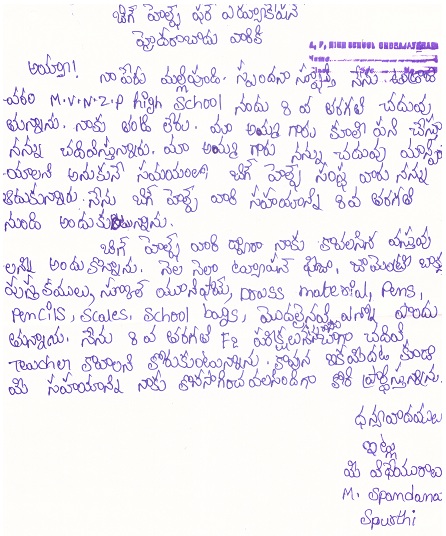 బిగ్ హెల్ప్ ఫర్ ఎడ్యుకేషన్
హైదరాబాదు వారికి
అయ్యా! నా పేరు మల్లెపూడి. స్పందనా స్ఫూర్తి నేను
M.V.N.Z.P High School నందు 8 వ తరగతి చదువు
తున్నాను. నాకు తండ్రి లేరు. మా అమ్మ గారు కూలి పని చేస్తూ
నన్ను చదివిస్తున్నారు. మా అమ్మ గారు నన్ను చదువు
యాలని అనుకునే సమయంలో బిగ్ హెల్ప్ సంస్థ వారు నన్ను
ఆదుకున్నారు. నేను బిగ్ హెల్ప్ వారి సహాయాన్ని 6వ తరగతి
నుండి అందుకుంటున్నాను.
బిగ్ హెల్ప్ వారి ద్వారా నాకు కావలసిన వస్తువు
లన్నీ అందుకొన్నాను. నెల నెలా ట్యూషన్ ఫీజు, జామెంట్రీ బాక్స్
పుస్తకములు, స్కూల్ యూనిఫామ్, Drass material, Pens,
Pencils, Scales, School bags, మొదలైనవి ఎన్నో పొందు
తున్నాను. నేను 8 వ తరగతి F2 పరీక్షలు బాగా చదివి
Teacher కావాలని కోరుకుంటున్నాను. కావున
మీ సహాయాన్ని నాకు కొనసాగించవలసిందిగా కోరి ప్రార్థిస్తున్నాను.
ధన్యవాదములు
ఇట్లు
మీ విధేయురాలు
M. Spandana
Spurthi